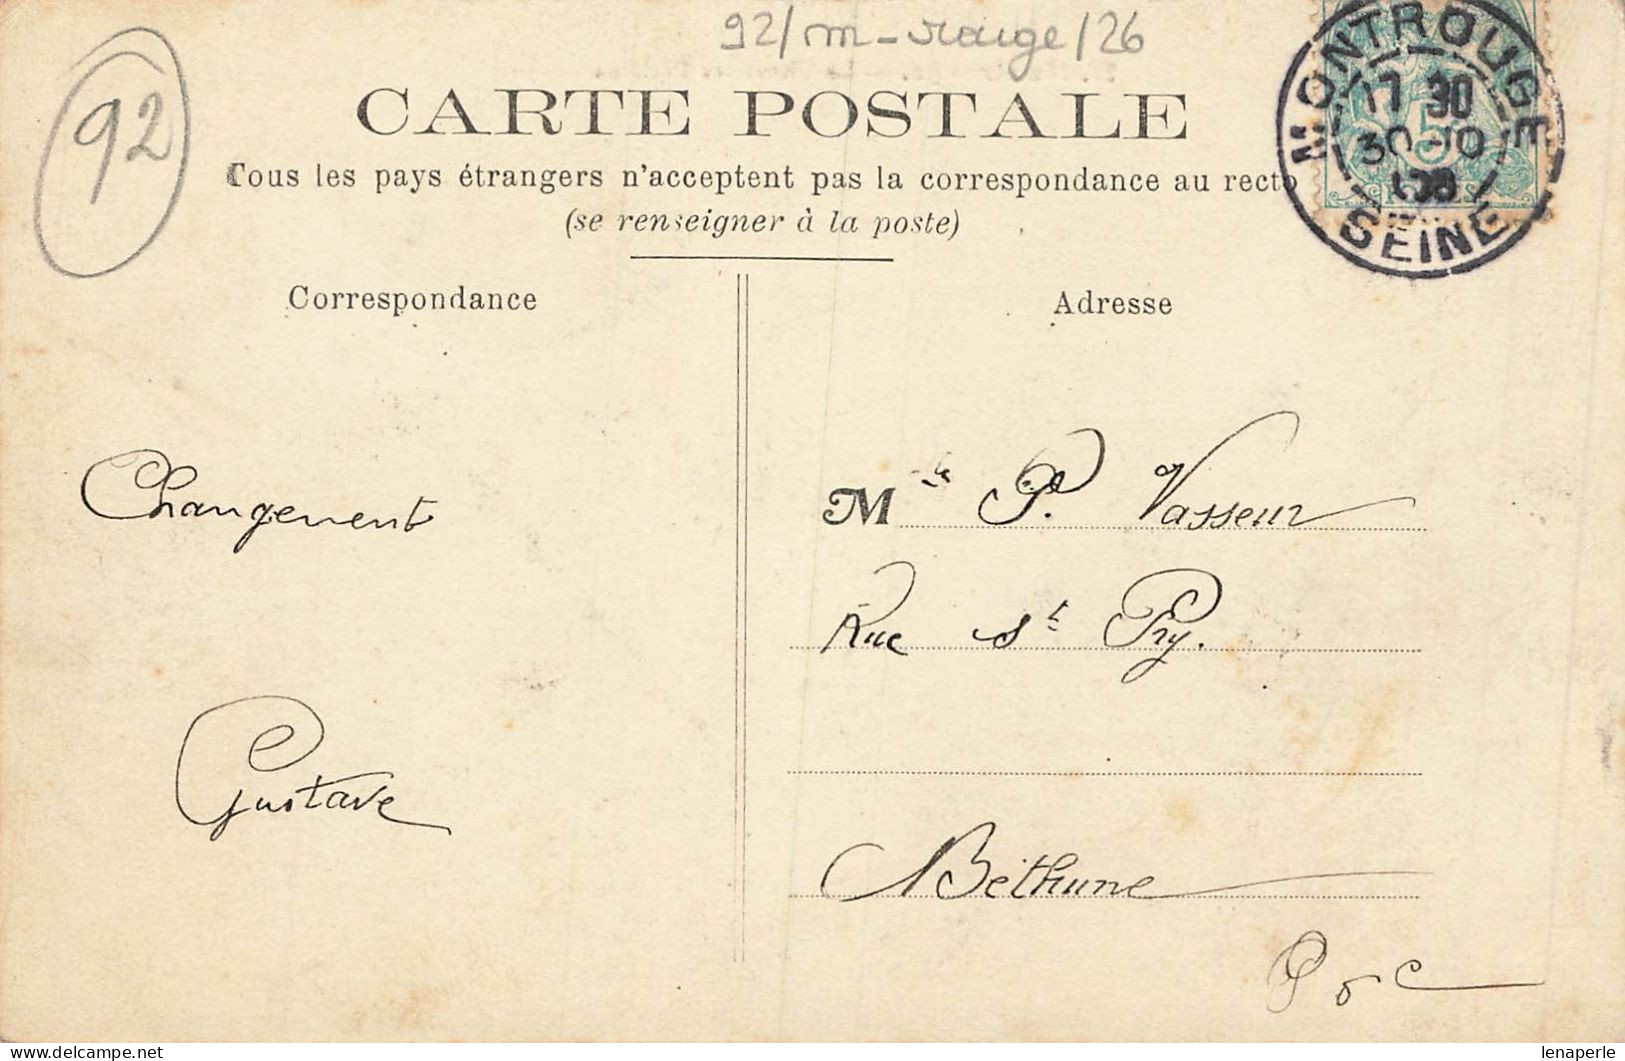 92/m-rouge/26
92
CARTE POSTALE
Tous les pays étrangers n'acceptent pas la correspondance au recto
(se renseigner à la poste)
MONTROUGE
17 30
30-10
08
SEINE
5
POSTES
Correspondance
Adresse
Changement
Gustave
M le P. Vasseur
Rue St Pry.
Béthune
P d C
lenaperle